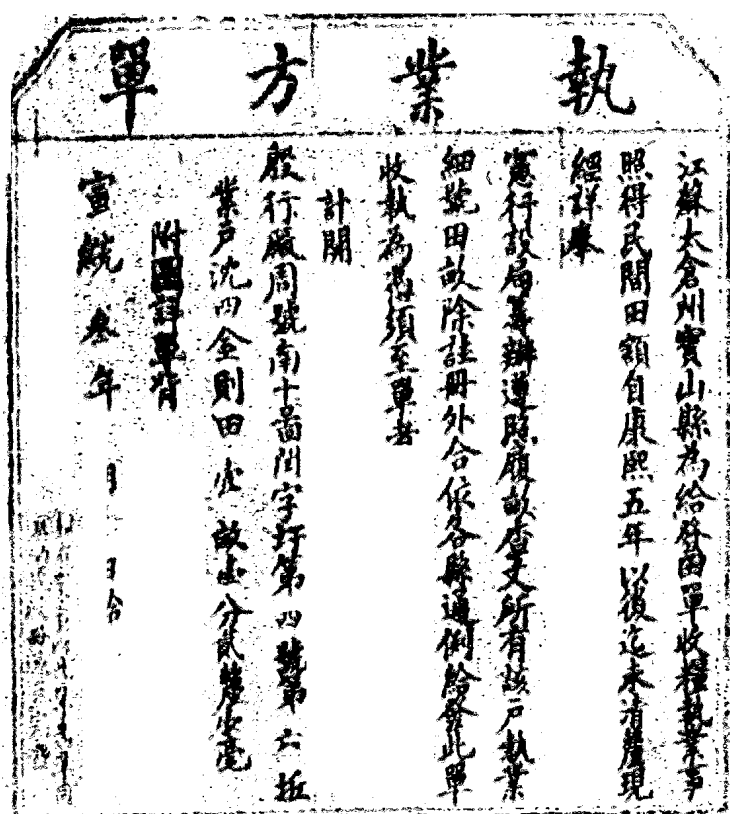 執業方單
江蘇太倉州寶山縣為給發田單收糧執業事
照得民間田額自康熙五年以後迄未清釐現
經詳奉
憲行設局籌辦遵照履畝查丈所有該戶執業
細號田畝除註冊外合依各縣通例給發此單
收執為憑須至單者
計開
殷行廠周號南十啚閏字圩第四號第六坵
業戶沈四金則田壹畝壹分貳釐　毫
附圖詳單背
宣統叁年　月　日給